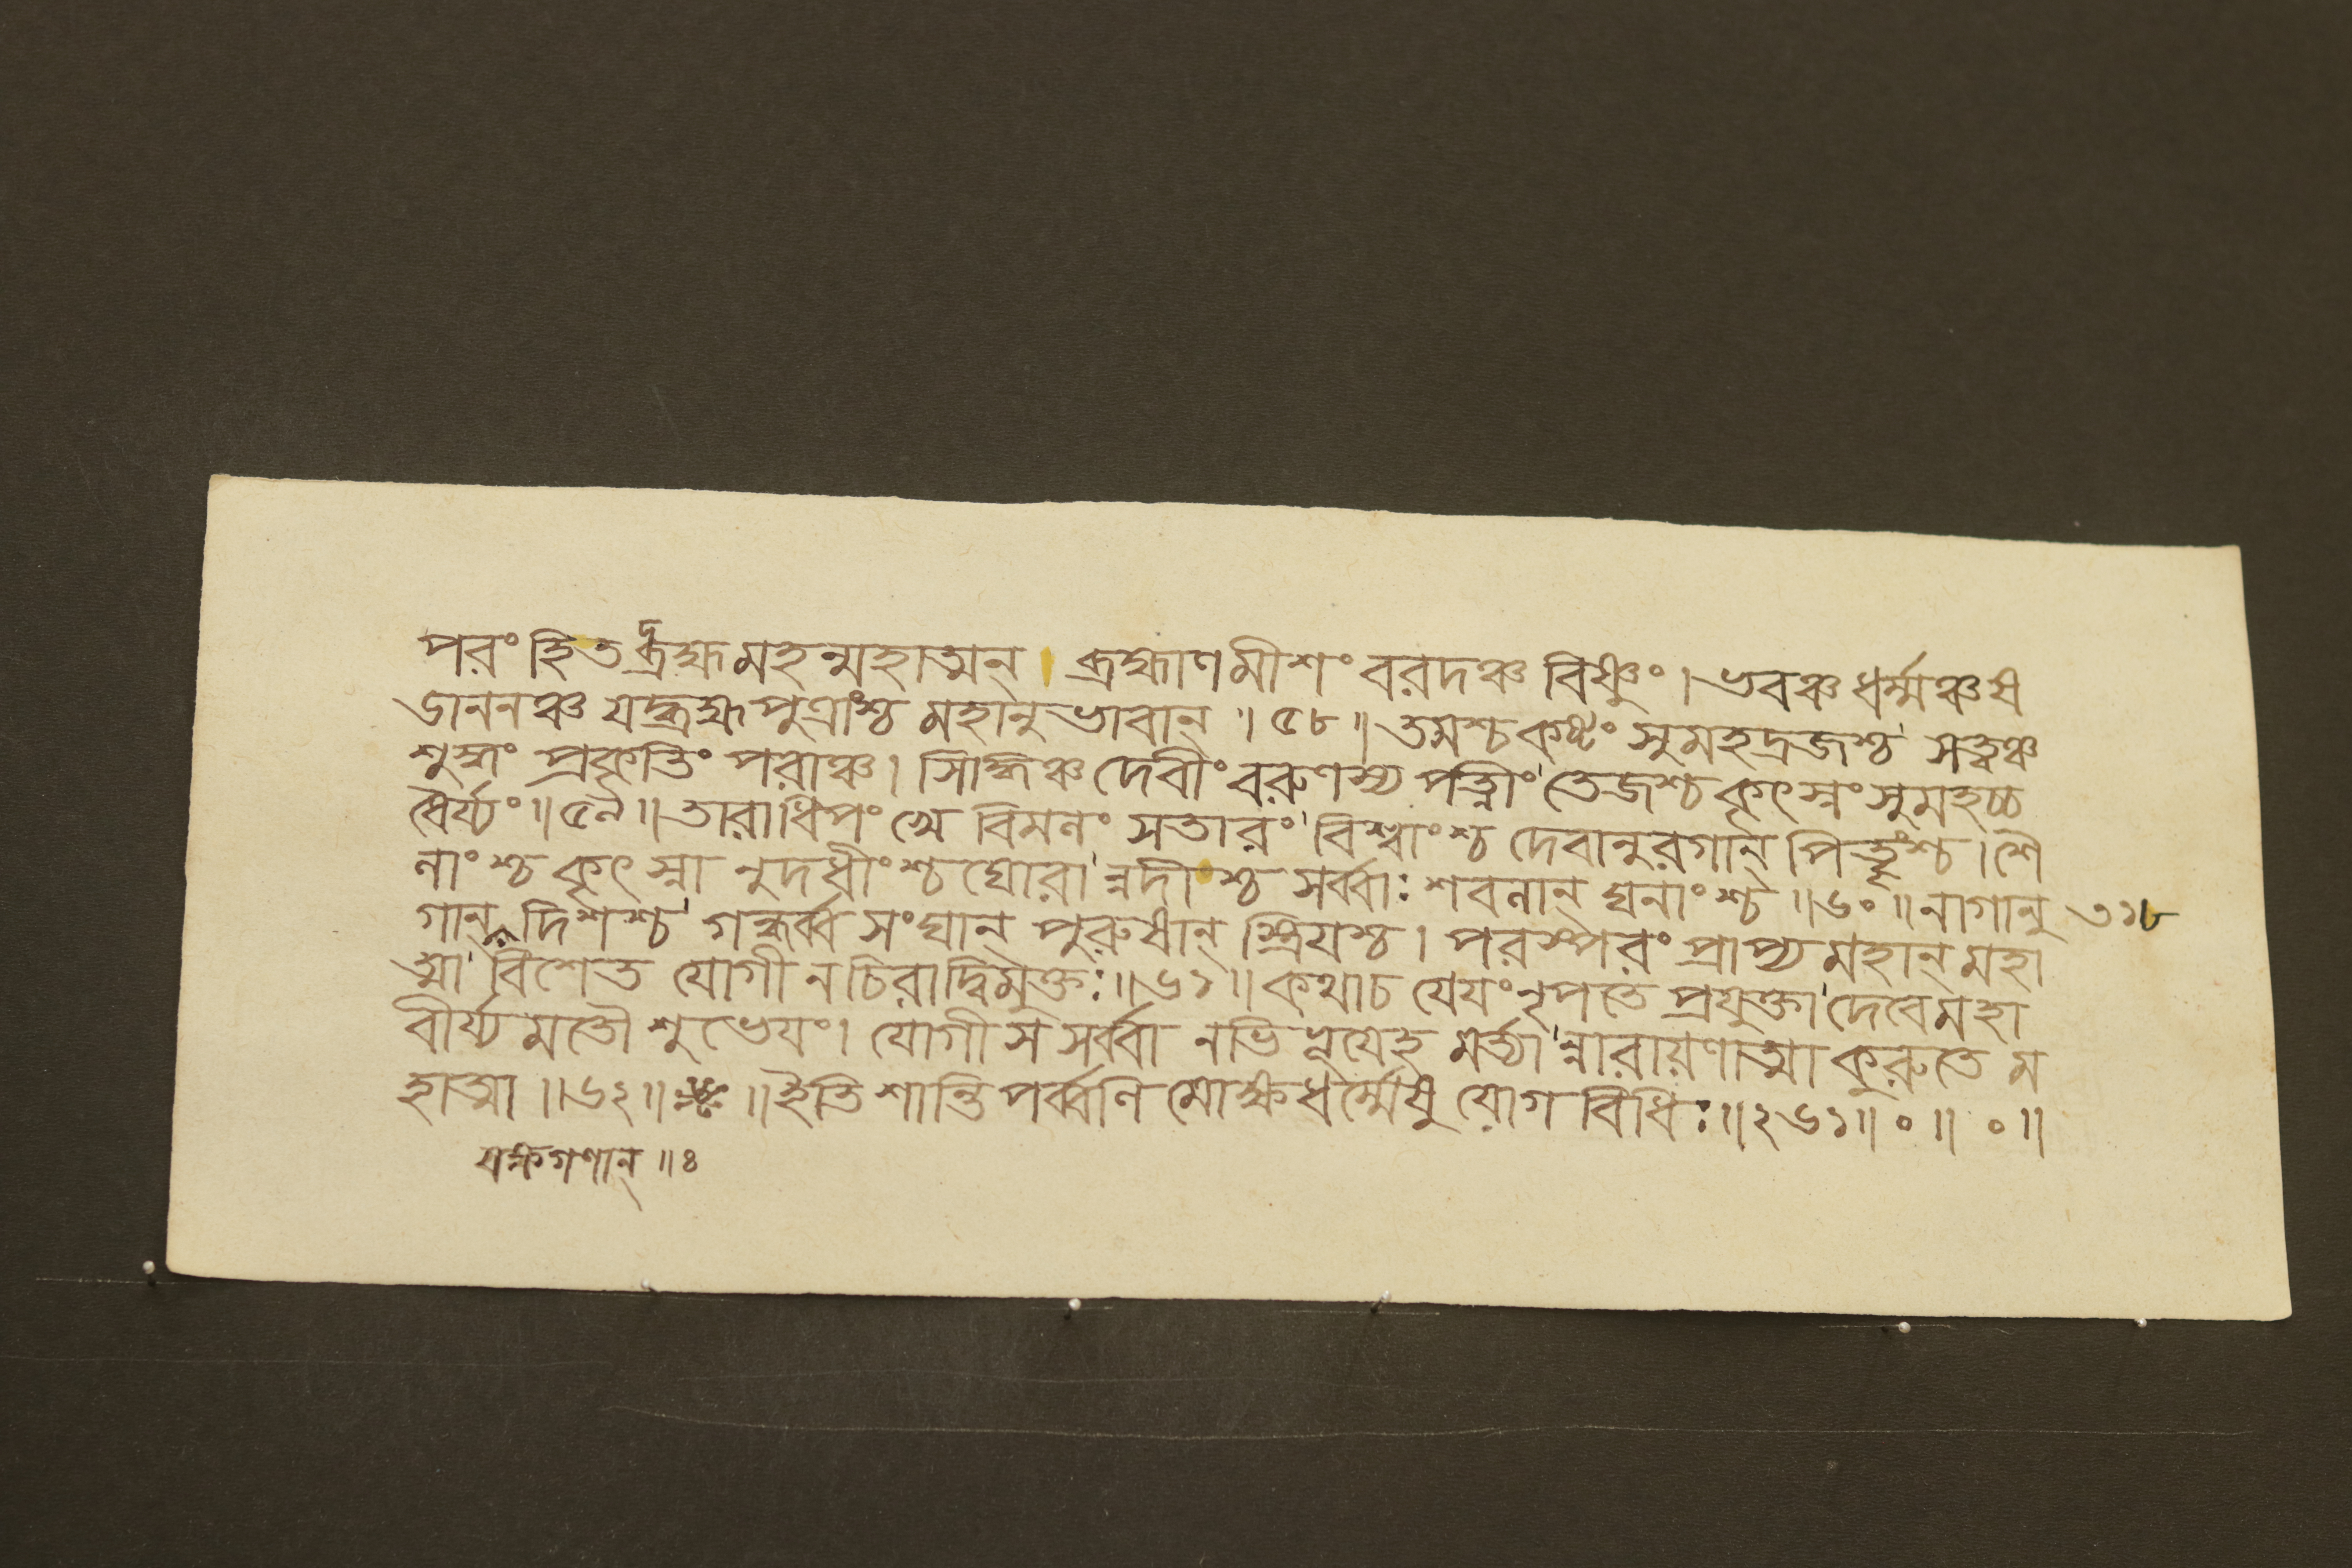 পরং হি তদ্ব্রহ্ম মহন্মহাত্মন্ । ব্রহ্মাণমীশং বরদঞ্চ বিষ্ণুং । ভবঞ্চ ধর্ম্মঞ্চ ষ
ডাননঞ্চ যদ্ব্রহ্মপুত্রাংশ্চ মহানুভাবান্ ॥ ৫৮ ॥ তমশ্চ কষ্টং সুমহদ্রজশ্চ সত্ত্বঞ্চ
শুদ্ধং প্রকৃতিং পরাঞ্চ । সিদ্ধিঞ্চ দেবীং বরুণস্য পত্নীং তেজশ্চ কৃৎস্নং সুমহচ্চ
ধৈর্য্যং ॥ ৫৯ ॥ তারাধিপং খে বিমলং সতারং বিশ্বাংশ্চ দেবানুরগান্ পিতৃংশ্চ । শৈ
লাংশ্চ কৃৎস্নানুদধীংশ্চ ঘোরান্নদীংশ্চ সর্ব্বাঃ শবনান্ ঘনাংশ্চ ॥ ৬০ ॥ নাগান্ন ৩১৮
গান্ দিশশ্চ গন্ধর্ব্ব সংঘান্ পুরুষান্ স্ত্রিয়শ্চ । পরস্পরং প্রাপ্য মহান্ মহা
ত্মা বিশেত যোগী ন চিরাদ্বিমুক্তঃ ॥ ৬১ ॥ কথা চ যেয়ং নৃপতে প্রযুক্তা দেবে মহা
বীর্য্যমতৌ শুভেয়ং । যোগী স সর্ব্বানভিভূয়েহ মর্ত্ত্যান্নারায়ণাত্মা কুরুতে ম
হাত্মা ॥ ৬২ ॥ ॥ ইতি শান্তিপর্ব্বণি মোক্ষধর্ম্মেষু যোগবিধিঃ ॥ ২৬১ ॥ ০ ॥ ০ ॥
যক্ষগণান্ ॥ ৪